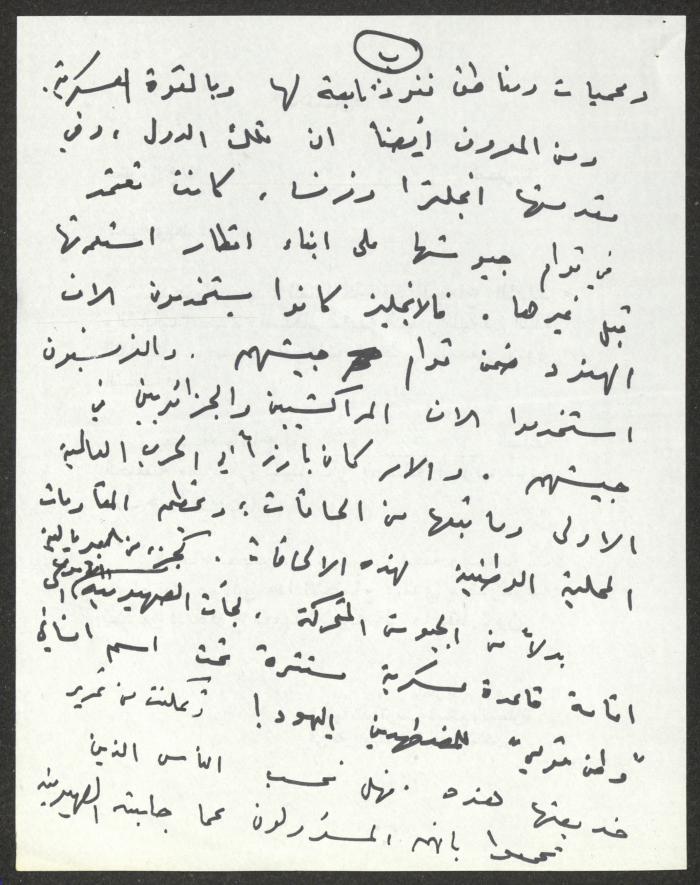 ب
ومحميات ومناطق نفوذ تابعة لها وبالقوة العسكرية.
ومن المعروف أيضاً ان تلك الدول ، وفي
مقدمتها انجلترا وفرنسا ، كانت تعتمد
في قوام جيوشها على ابناء اقطار استعمرتها
قبل غيرها . فالانجليز كانوا يستخدمون الاف
الهنود ضمن قوام جيشهم . والفرنسيون
استخدموا الاف المراكشيين والجزائريين في
جيشهم . والامر كان بارزاً في الحرب العالمية
الاولى وما تبعها من الحاقات ؛ وتحطيم المقاومات
المحلية الوطنية لهذه الالحاقات . من
بدلاً من الجيوش المتحركة ، لجأت الصهيونية
اقامة قاعدة عسكرية مستترة تحت اسم
"وطن قومي" للمضطهدين اليهود ! وتمكنت من تمرير
خديعتها هذه . فهل نحسب الناس الذين
بانهم المسؤولون عما جلبته الصهيونية